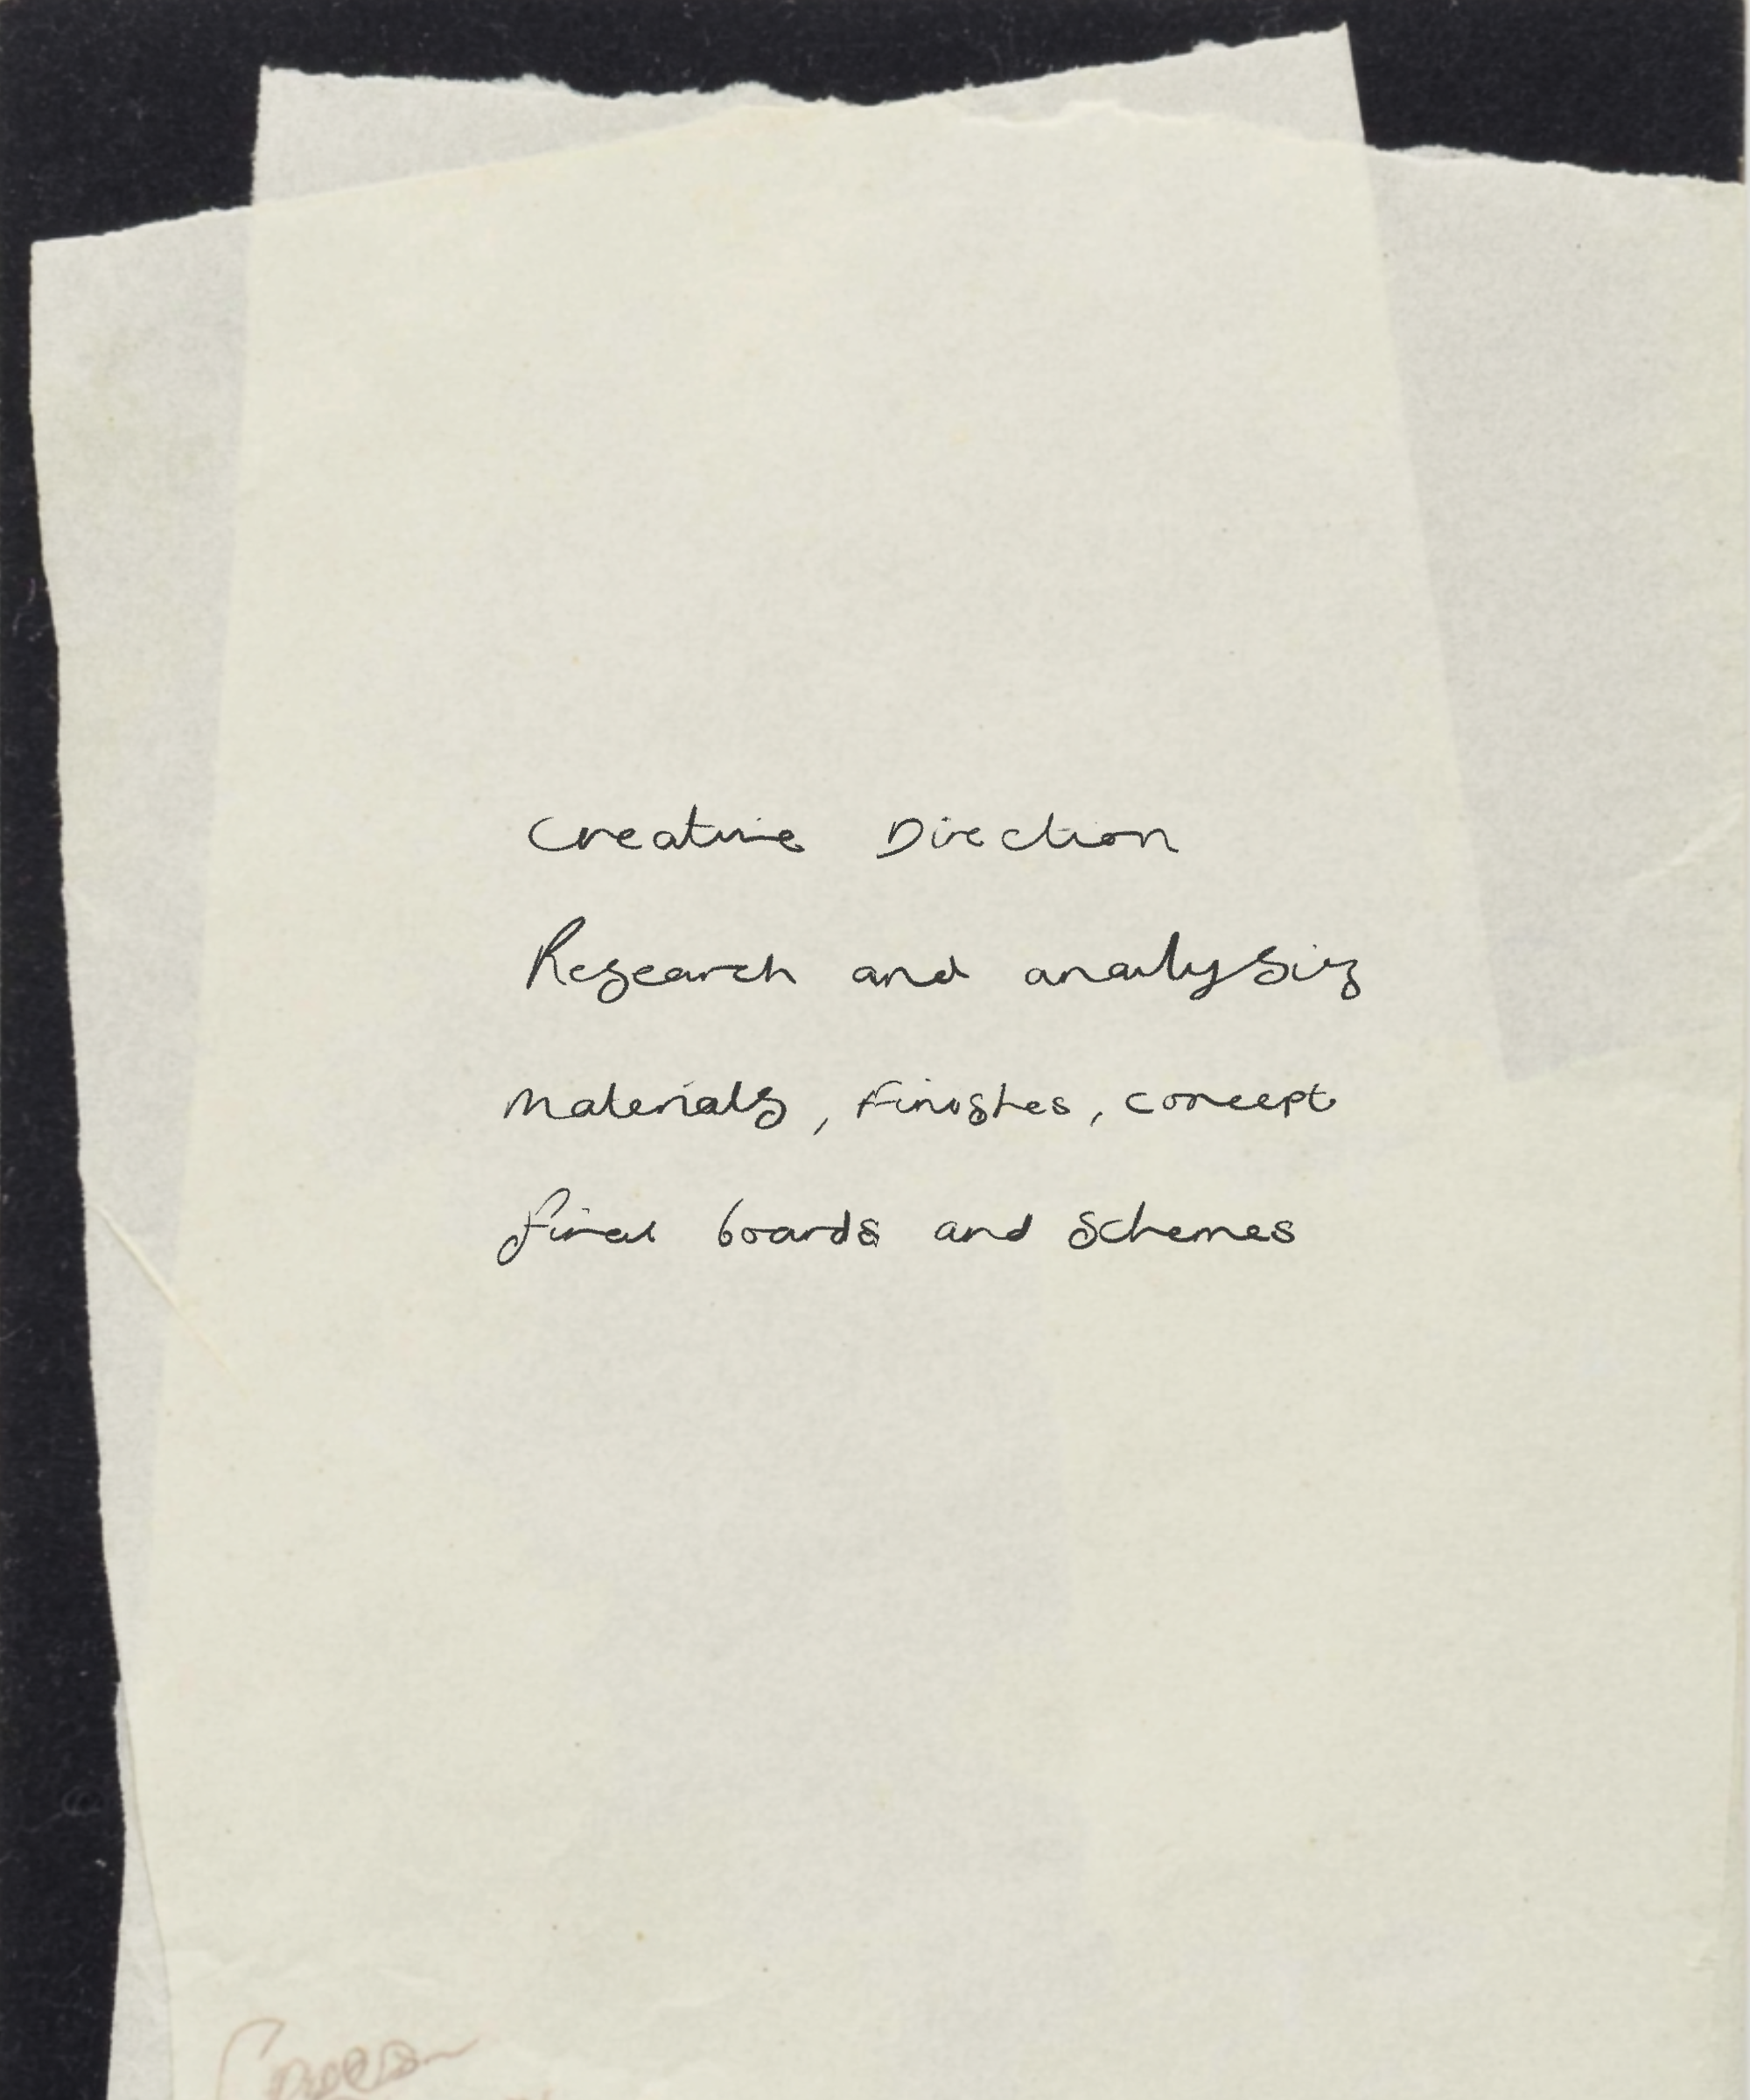 Creative Direction
Research and analysis
Materials, Finishes, concept
final boards and schemes